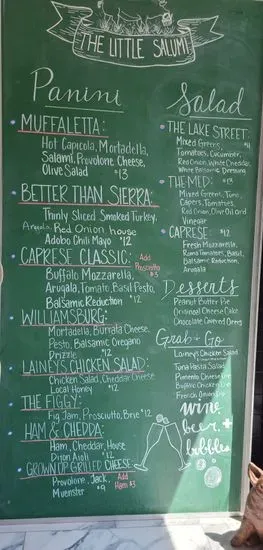 THE LITTLE SALUMI
Panini
MUFFALETTA:
Hot Capicola, Mortadella,
Salami, Provolone Cheese,
Olive Salad $13
BETTER THAN SIERRA:
Thinly Sliced Smoked Turkey,
Arugala, Red Onion, house
Adobo Chili Mayo $12
CAPRESE CLASSIC: Add
Prosciutto
$3
Buffalo Mozzarella,
Arugala, Tomato, Basil Pesto,
Balsamic Reduction $12
WILLIAMSBURG:
Mortadella, Burrata Cheese,
Pesto, Balsamic Oregano
Drizzle $12
LAINEY'S CHICKEN SALAD:
Chicken Salad, Cheddar Cheese
Local Honey $12
THE FIGGY:
Fig Jam, Prosciutto, Brie $12
HAM & CHEDDA:
Ham, Cheddar, House
Dijon Aioli $12
GROWN UP GRILLED CHEESE
Provolone, Jack, Add
Muenster $9 Ham $3
Salad
THE LAKE STREET:
Mixed Greens, $11
Tomatoes, Cucumber,
Red Onion, White Cheddar,
White Balsamic Dressing
THE MED:
Mixed Greens, Tuna,
Capers, Tomatoes,
Red Onion, Olive Oil and
Vinegar
CAPRESE: $12
Fresh Mozzarella,
Roma Tomatoes, Basil,
Balsamic Reduction,
Arugala
Desserts
Peanut Butter Pie
Original Cheese Cake
Chocolate Covered Oreos
Grab + Go
Lainey's Chicken Salad
Tuna Pasta Salad
Pimento Cheese
Buffalo Chicken
French Onion
wine
beer, +
bubbles